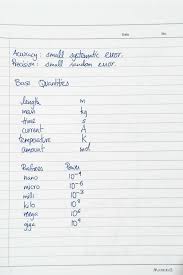 Date
No.
Accuracy : small systematic error.
Precision : small random error.
Base Quantities
length m
mass kg
time s
current A
temperature K
amount mol
Prefixes Power
nano 10⁻⁹
micro 10⁻⁶
milli 10⁻³
kilo 10³
mega 10⁶
giga 10⁹